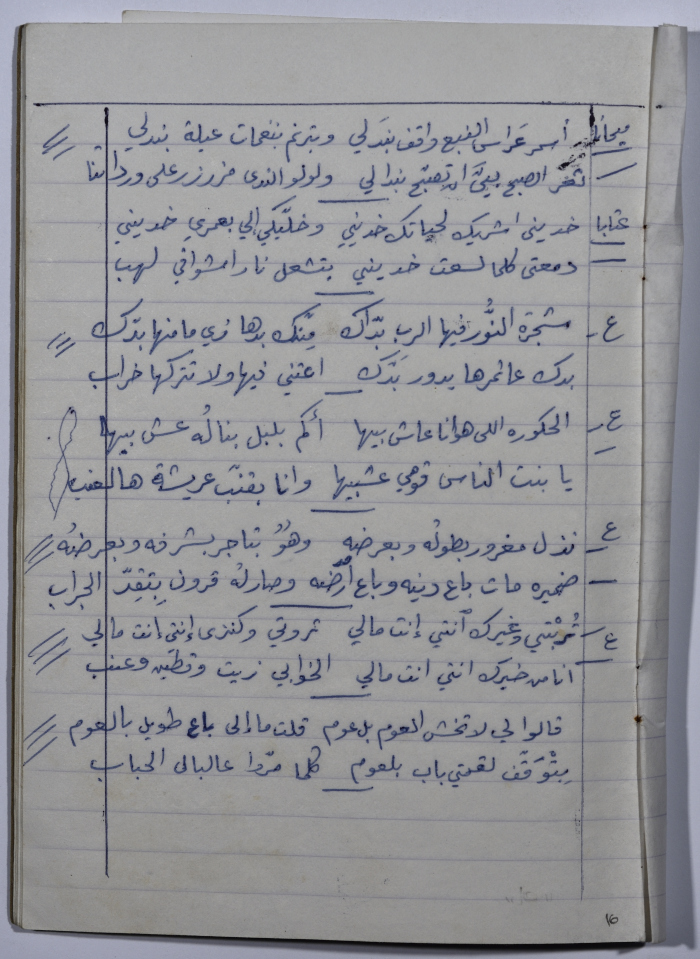 ميجانا أسمر عَ راس النبع واقف بندلي ويترنم بنغمات عيلة بندلي
ثغر الصبح بيفيَّ نبدالي ولولو الندى مزرزر على ورداتنا
عتابا خديني اشريك لحياتك خديني وخلّيكي إلي بعمري خديني
دمعتي كلما لسعت خديني بتشعل نار امشواقي لهب
ع - شجرة النُّور فيها الرب بدّاك مِنّك بدها زي ما منها بدّك
بدك عالمرها يدور بَدّك اعتني فيها ولا تتركها خراب
ع - الحكوره اللى هوانا عاش بيها أكم بلبل بنالُه عش بيها
يا بنت الناس قومي عشبيها وانا بقنّب عريشة هالعنب
ع - نذل مغرور بطولُه وبعرضه وهوُّ بتاجر بشرفه وبعرضُه
ضميره مات باع دينه وباع أرضُه وصارلُه قرون بِتقِدّ الجراب
ع - تُربْتي وغيرك آنتي إنت مالي ثروتي وكنزى إنتي إنت مالي
انا من خيرك انتي انت مالي الخوابي زيت وقطّين وعنب
قالوا لي لا تخش العوم بل عوم قلت ما إلى باع طويل بالعوم
بِتْوَقَّف لقمتي باب بلعوم كلما مرّوا عالبالي الحباب
16